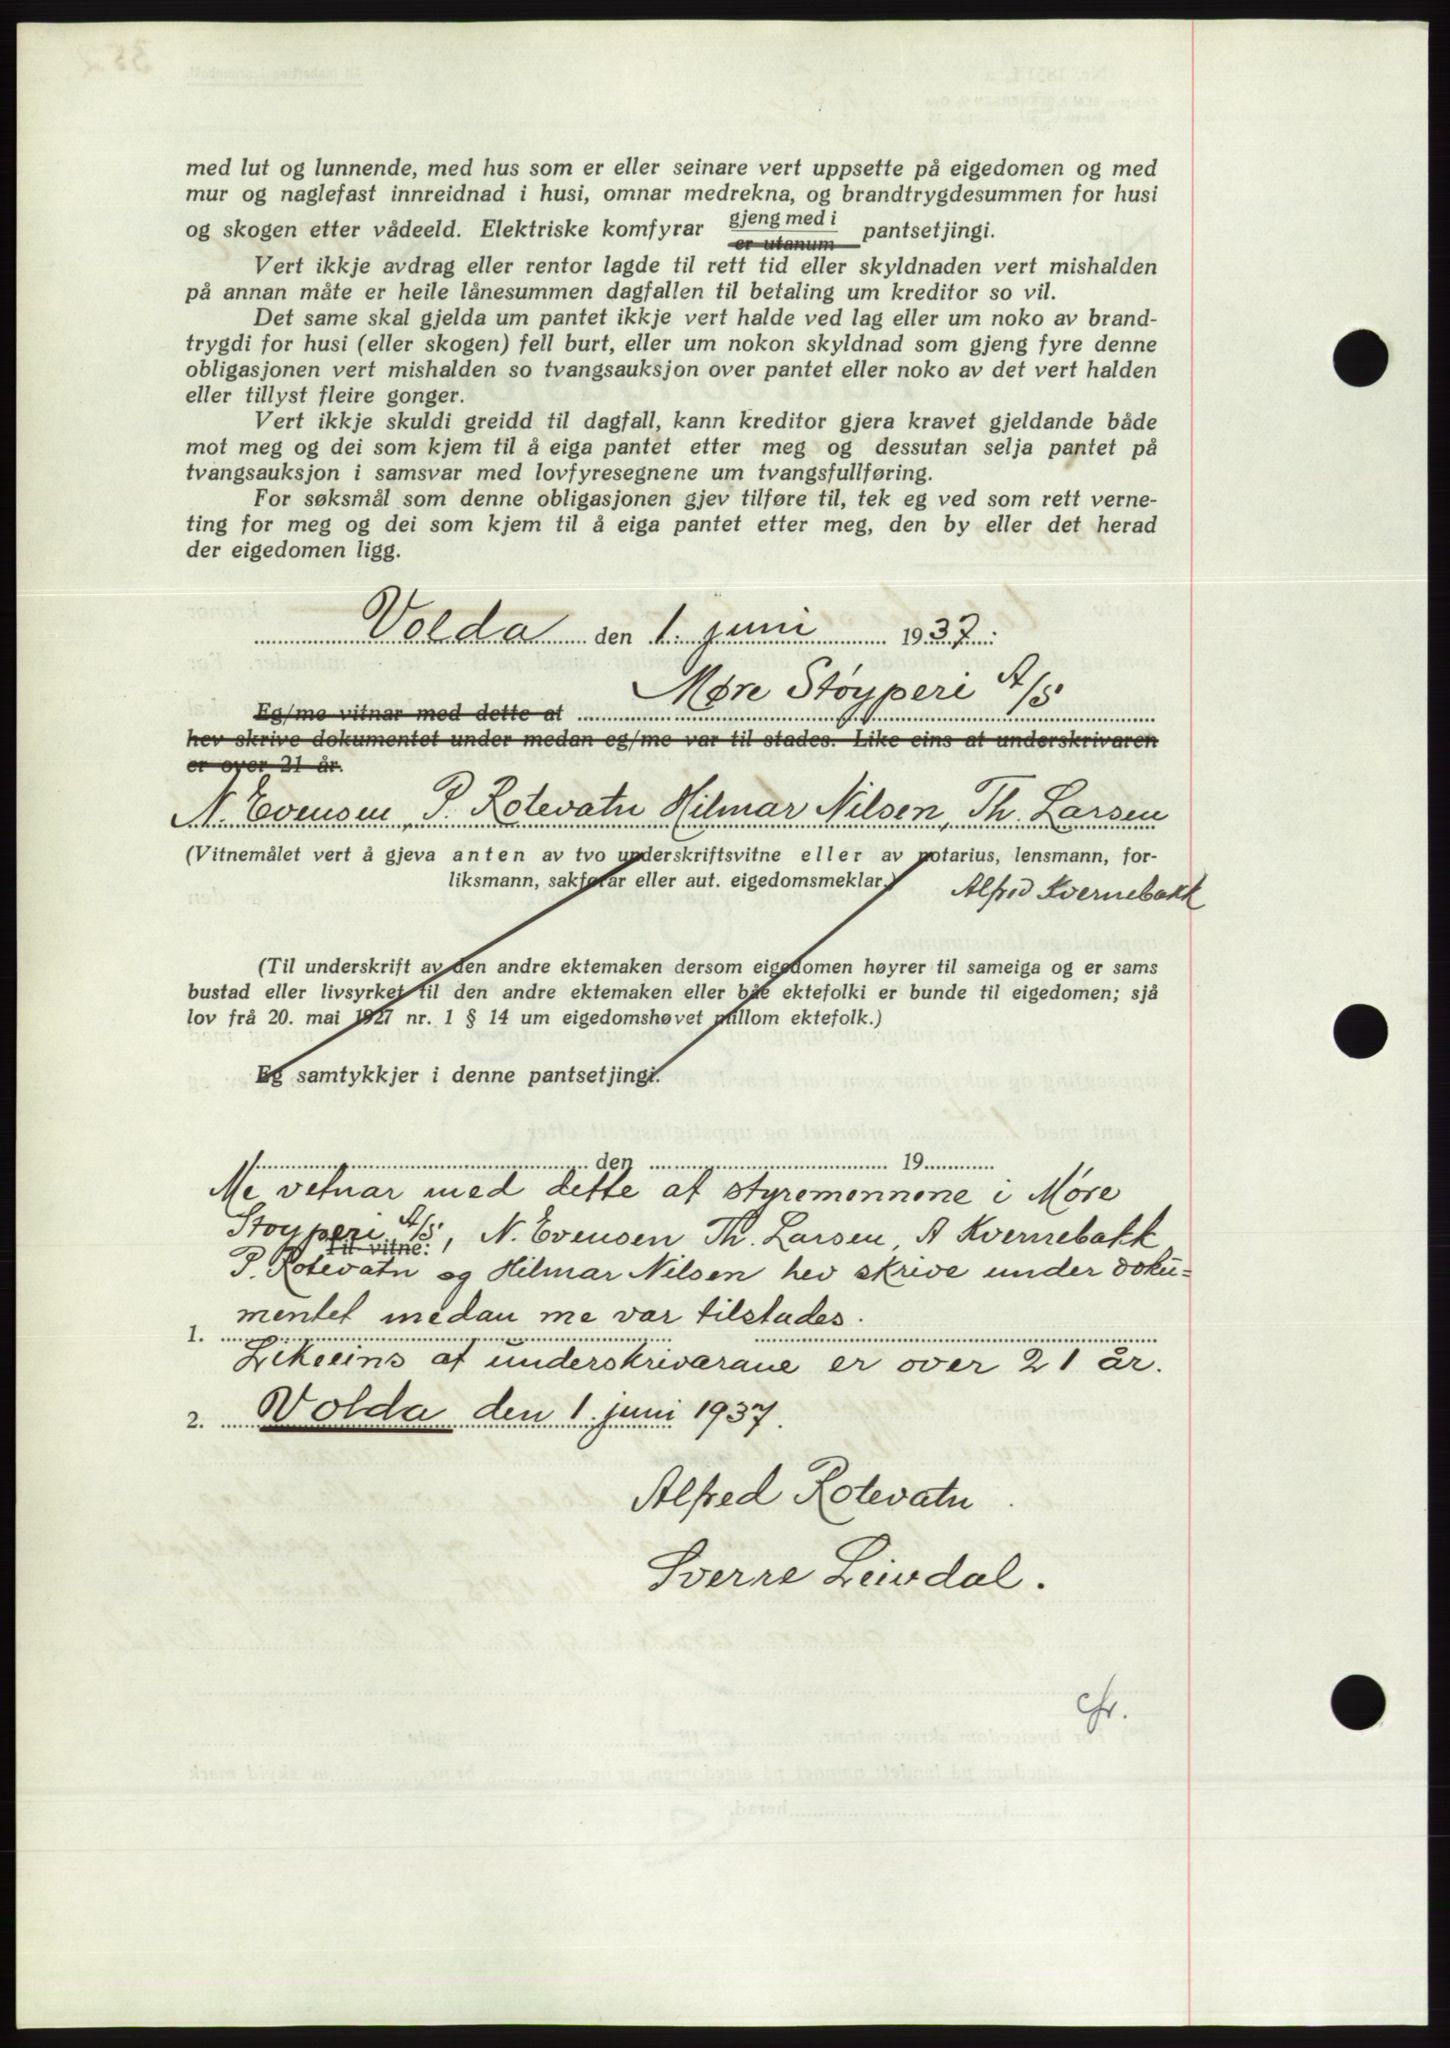 med lut og lunnende, med hus som er eller seinare vert uppsette på eigedomen og med
mur og naglefast innreidnad i husi, omnar medrekna, og brandtrygdesummen for husi
og skogen etter vådeeld. Elektriske komfyrar gjeng med i pantsetjingi.
er utanum
Vert ikkje avdrag eller rentor lagde til rett tid eller skyldnaden vert mishalden
på annan måte er heile lånesummen dagfallen til betaling um kreditor so vil.
Det same skal gjelda um pantet ikkje vert halde ved lag eller um noko av brand-
trygdi for husi (eller skogen) fell burt, eller um nokon skyldnad som gjeng fyre denne
obligasjonen vert mishalden so tvangsauksjon over pantet eller noko av det vert halden
eller tillyst fleire gonger.
Vert ikkje skuldi greidd til dagfall, kann kreditor gjera kravet gjeldande både
mot meg og dei som kjem til å eiga pantet etter meg og dessutan selja pantet på
tvangsauksjon i samsvar med lovfyresegnene um tvangsfullføring.
For søksmål som denne obligasjonen gjev tilføre til, tek eg ved som rett verne-
ting for meg og dei som kjem til å eiga pantet etter meg, den by eller det herad
der eigedomen ligg.
Volda den 1. juni 1937.
Møre Støyperi A/S
Eg/me vitnar med dette at
hev skrive dokumentet under medan eg/me var til stades. Like eins at underskrivaren
er over 21 år.
N. Evensen, P. Rotevatn Hilmar Nilsen, Th. Larsen
(Vitnemålet vert å gjeva anten av tvo underskriftsvitne eller av notarius, lensmann, for-
liksmann, sakførar eller aut. eigedomsmeklar.) Alfred Kvernebakk
(Til underskrift av den andre ektemaken dersom eigedomen høyrer til sameiga og er sams
bustad eller livsyrket til den andre ektemaken eller båe ektefolki er bunde til eigedomen; sjå
lov frå 20. mai 1927 nr. 1 § 14 um eigedomshøvet millom ektefolk.)
Eg samtykkjer i denne pantsetjingi.
den 19
Me vetnar med dette at styremennene i Møre
Støyperi A/S, N. Evensen Th. Larsen, A Kvernebakk
Til vitne:
P. Rotevatn og Hilmar Nilsen hev skrive under doku=
mentet medan me var tilstades.
1.
Likeeins at underskrivarane er over 21 år.
2. Volda den 1. juni 1937.
Alfred Rotevatn
Sverre Leivdal.